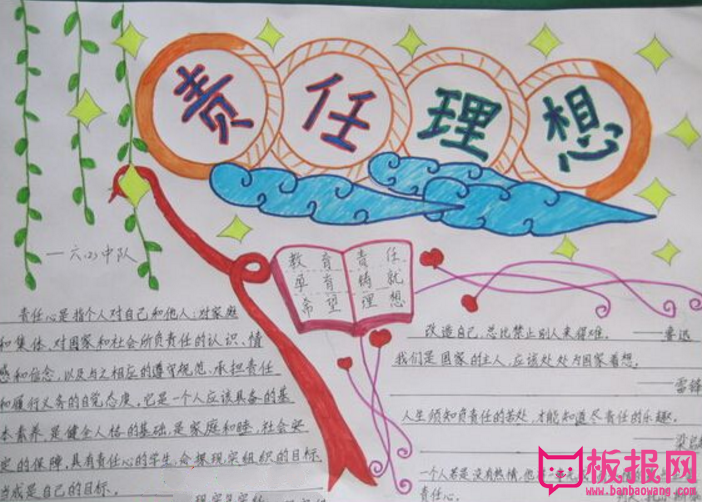 责任理想
一六(2)中队
教育责任
孕育铸就
希望理想
责任心是指个人对自己和他人,对家庭
和集体、对国家和社会所负责任的认识、情
感和信念,以及与之相应的遵守规范、承担责任
和履行义务的自觉态度,它是一个人应该具备的基
本素养,是健全人格的基础,是家庭和睦,社会安
定的保障,具有责任心的学生,会
现实组织的目标
当成是自己的目标.
改造自己,总比禁止别人来得难。——鲁迅
我们是国家的主人,应该处处为国家着想。
——雷锋
人生须知负责任的苦处,才能知道尽责任的乐趣。
——梁启
一个人若是没有热情,他
责任心.
板报网
www.banbaowang.com